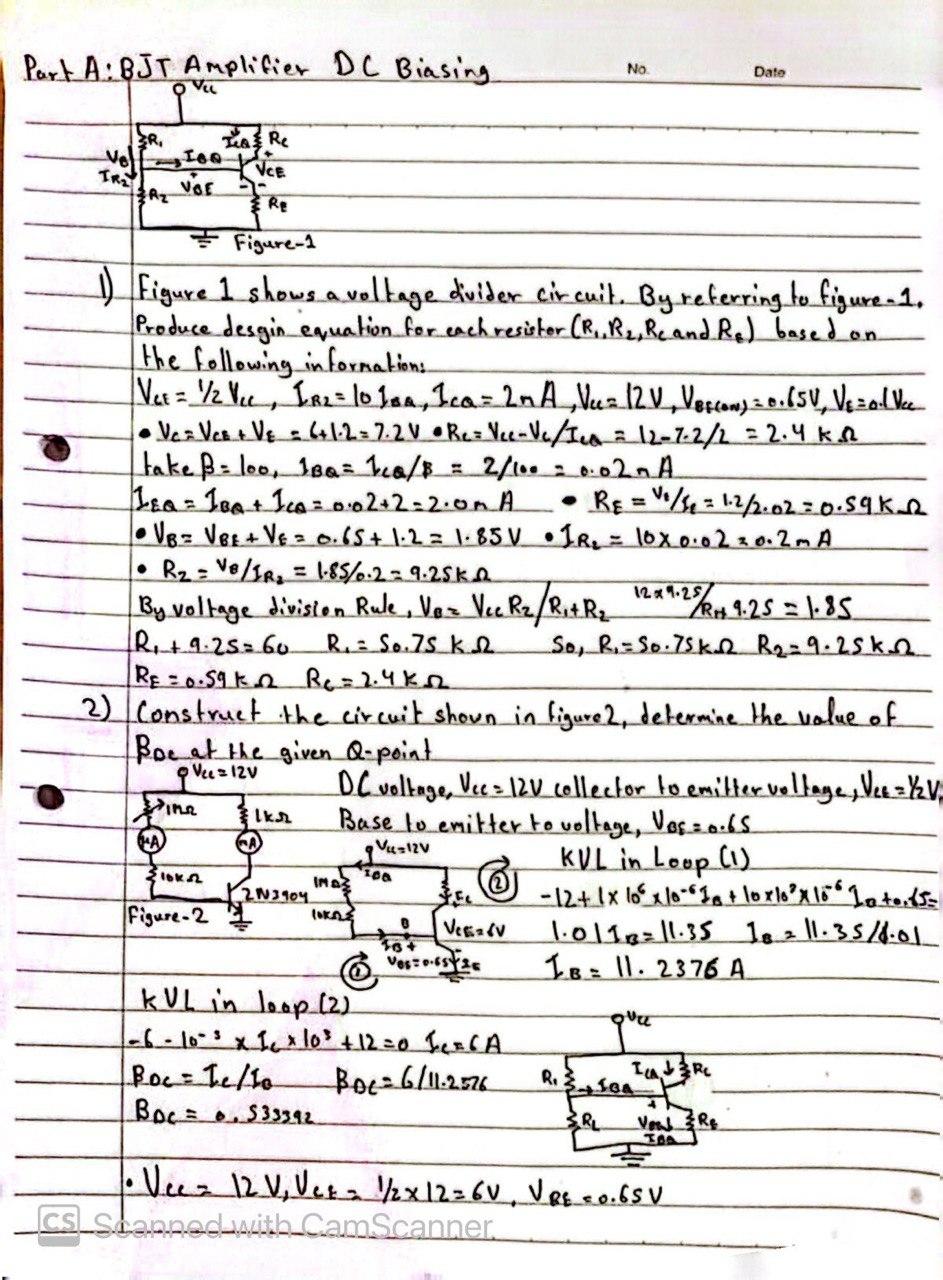 Part A: BJT Amplifier DC Biasing
No.
Date
Vcc
R₁
ICQ
Rc
VB
IBQ
VCE
IR2
VBE
R₂
RE
Figure-1
1) Figure 1 shows a voltage divider circuit. By referring to figure-1.
Produce desgin equation for each resistor (R₁, R₂, Rc and RE) based on
the following information:
VCE = 1/2 Vcc, IR2 = 10 IBQ, ICQ = 2mA, Vcc = 12V, VBE(ON) = 0.65V, VE = 0.1 Vcc
• Vc = VCE + VE = 6+1.2 = 7.2V • Rc = Vcc-Vc/ICQ = 12-7.2/2 = 2.4 kΩ
take β = 100, IBQ = ICQ/β = 2/100 = 0.02mA
IEQ = IBQ + ICQ = 0.02+2 = 2.0mA • RE = VE/IE = 1.2/2.02 = 0.59KΩ
• VB = VBE + VE = 0.65 + 1.2 = 1.85V • IR2 = 10 x 0.02 = 0.2mA
• R₂ = VB/IR2 = 1.85/0.2 = 9.25kΩ
By voltage division Rule, VB = Vcc R2/R1+R2 12x9.25/R1+9.25 = 1.85
R₁ + 9.25 = 60 R₁ = 50.75 kΩ So, R₁ = 50.75kΩ R₂ = 9.25kΩ
RE = 0.59 kΩ Rc = 2.4 kΩ
2) Construct the circuit shown in figure2, determine the value of
BDC at the given Q-point
Vcc = 12V
DC voltage, Vcc = 12V collector to emitter voltage, VCE = 1/2V,
1MΩ
1kΩ
Base to emitter to voltage, VBE = 0.65
μA
mA
10kΩ
2N3904
Figure-2
Vcc=12V
IBQ
1MΩ
10kΩ
2
Ic
B
VCE=6V
IB +
VBE=0.65V
IE
1
KVL in Loop (1)
-12+1x10⁶x10⁻⁶IB + 10x10³x10⁻⁶ IB+0.65=
1.01IB = 11.35 IB = 11.35/1.01
IB = 11.2376 A
KVL in loop (2)
-6-10⁻³ x Ic x 10³ + 12 = 0 Ic = 6A
BDC = Ic/IB BDC = 6/11.2576
BDC = 0.533392
Vcc
R₁
ICQ
Rc
IBQ
RE
• Vcc = 12V, VCE = 1/2 x 12 = 6V, VBE = 0.65V
CS Scanned with CamScanner